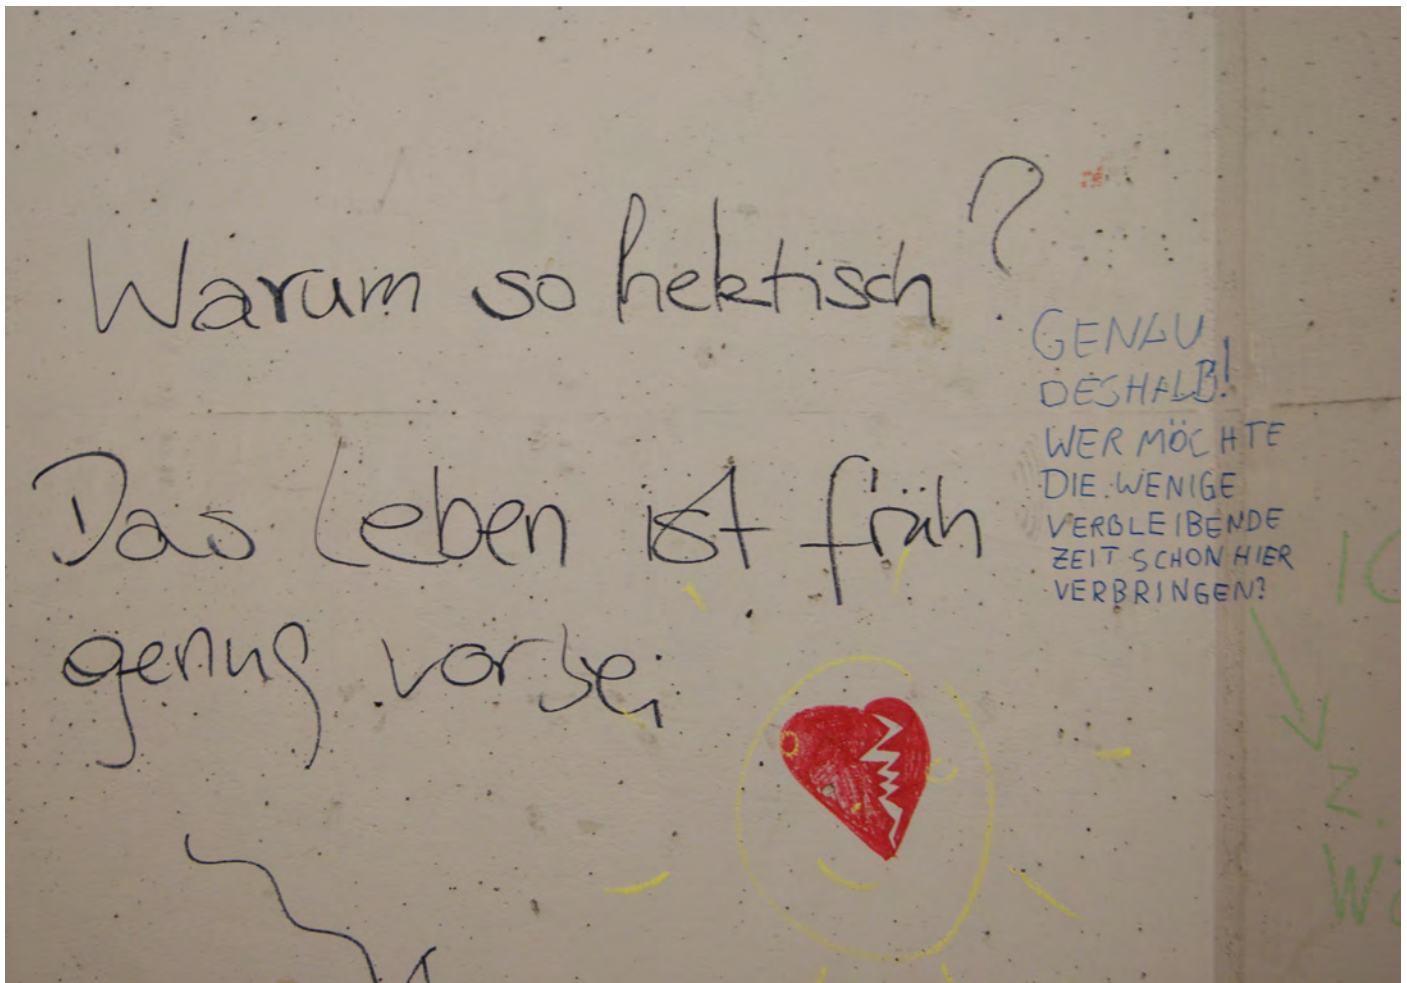 Warum so hektisch?
Das Leben ist früh
genug vorbei
GENAU
DESHALB!
WER MÖCHTE
DIE WENIGE
VERBLEIBENDE
ZEIT SCHON HIER
VERBRINGEN?